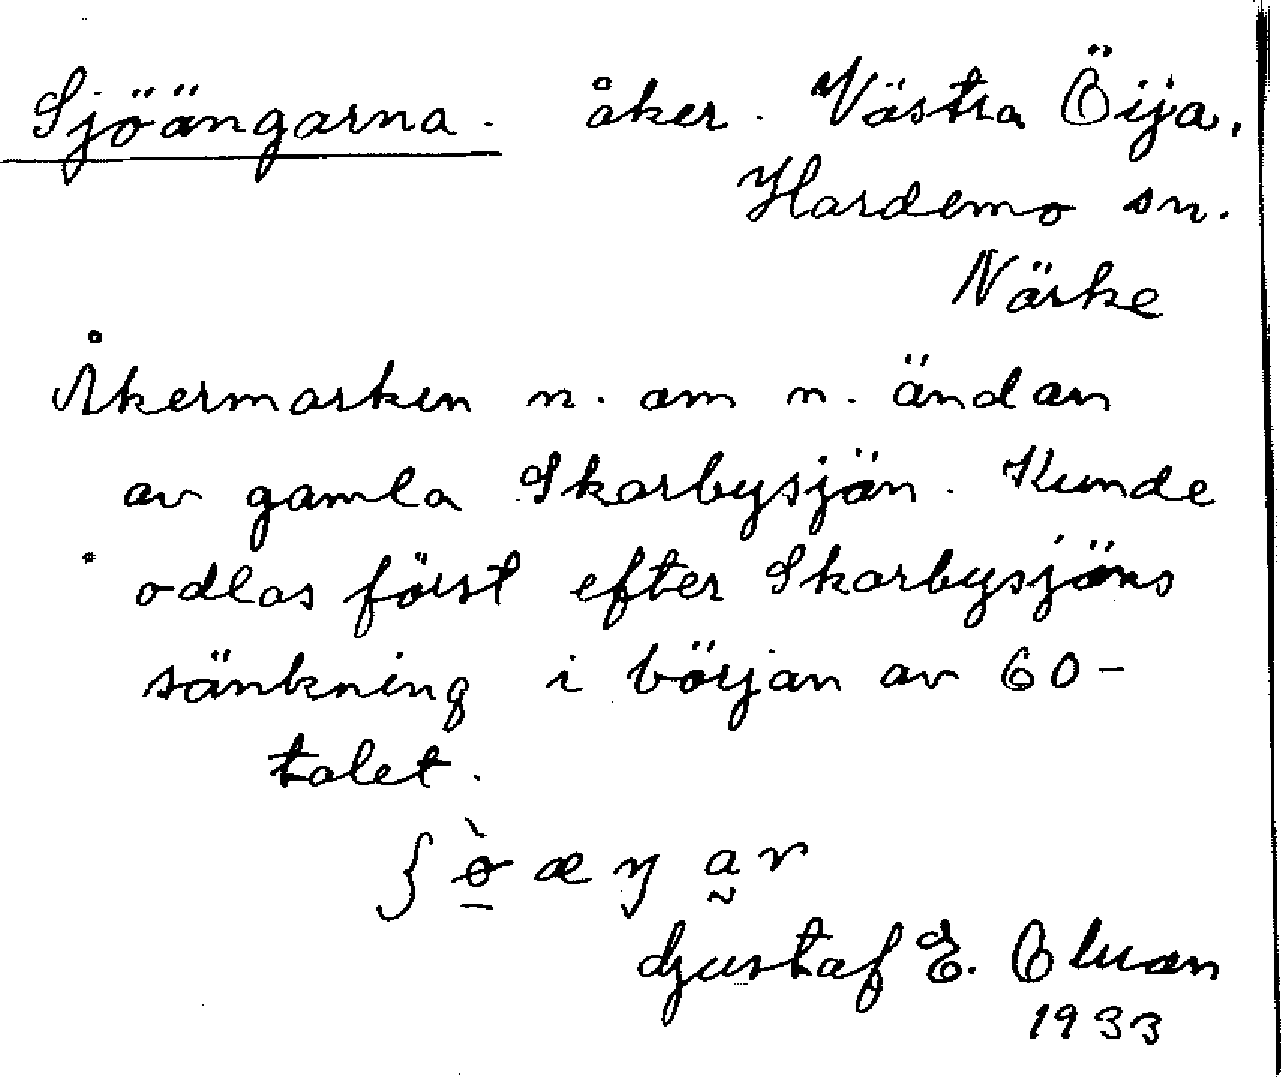 Sjöängarna. åker. Västra Öija.
Hardemo sn.
Närke
Åkermarken n. om n. ändan
av gamla Skarbysjön. Kunde
odlas först efter Skarbysjöns
sänkning i början av 60-
talet.
Gustaf E.
1933